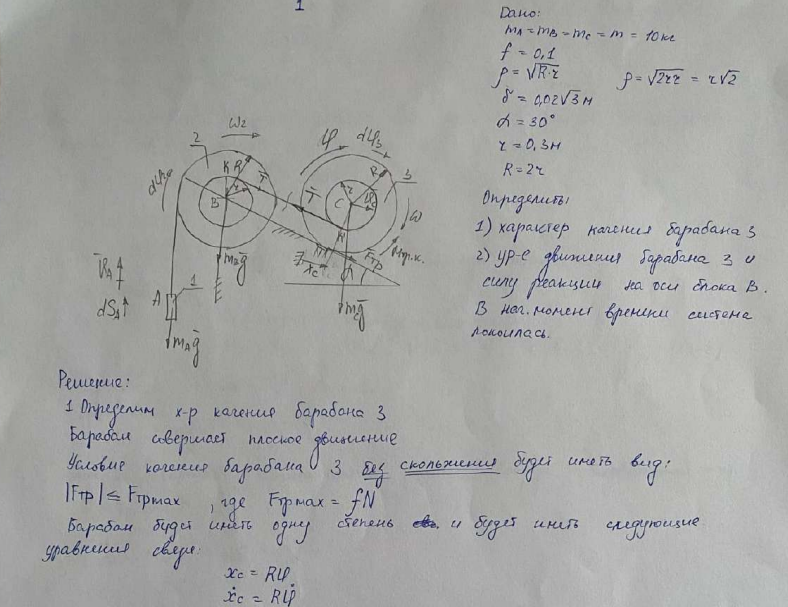 1
Дано:
mA = mB = mC = m = 10 кг
f = 0,1
ρ = √R·r ρ = √2rr = r√2
δ = 0,02√3 м
α = 30°
r = 0,3 м
R = 2r
Определить:
1) характер качения барабана 3
2) ур-е движения барабана 3 и
силу реакции на оси блока В.
В нач. момент времени система
покоилась.
ω2
2
K R
r
B
T̄
mBḡ
V̄A
dSA
A
1
mAḡ
φ
dφ3
R
3
r
C
T̄
ω
Mтр.к.
Fтр
xc
α
mCḡ
Решение:
1 Определим х-р качения барабана 3
Барабан совершает плоское движение
Условие качения барабана 3 без скольжения будет иметь вид:
|Fтр| ≤ Fтрmax , где Fтрmax = fN
Барабан будет иметь одну степень св. и будет иметь следующие
уравнения связи:
xc = Rφ
ẋc = Rφ̇